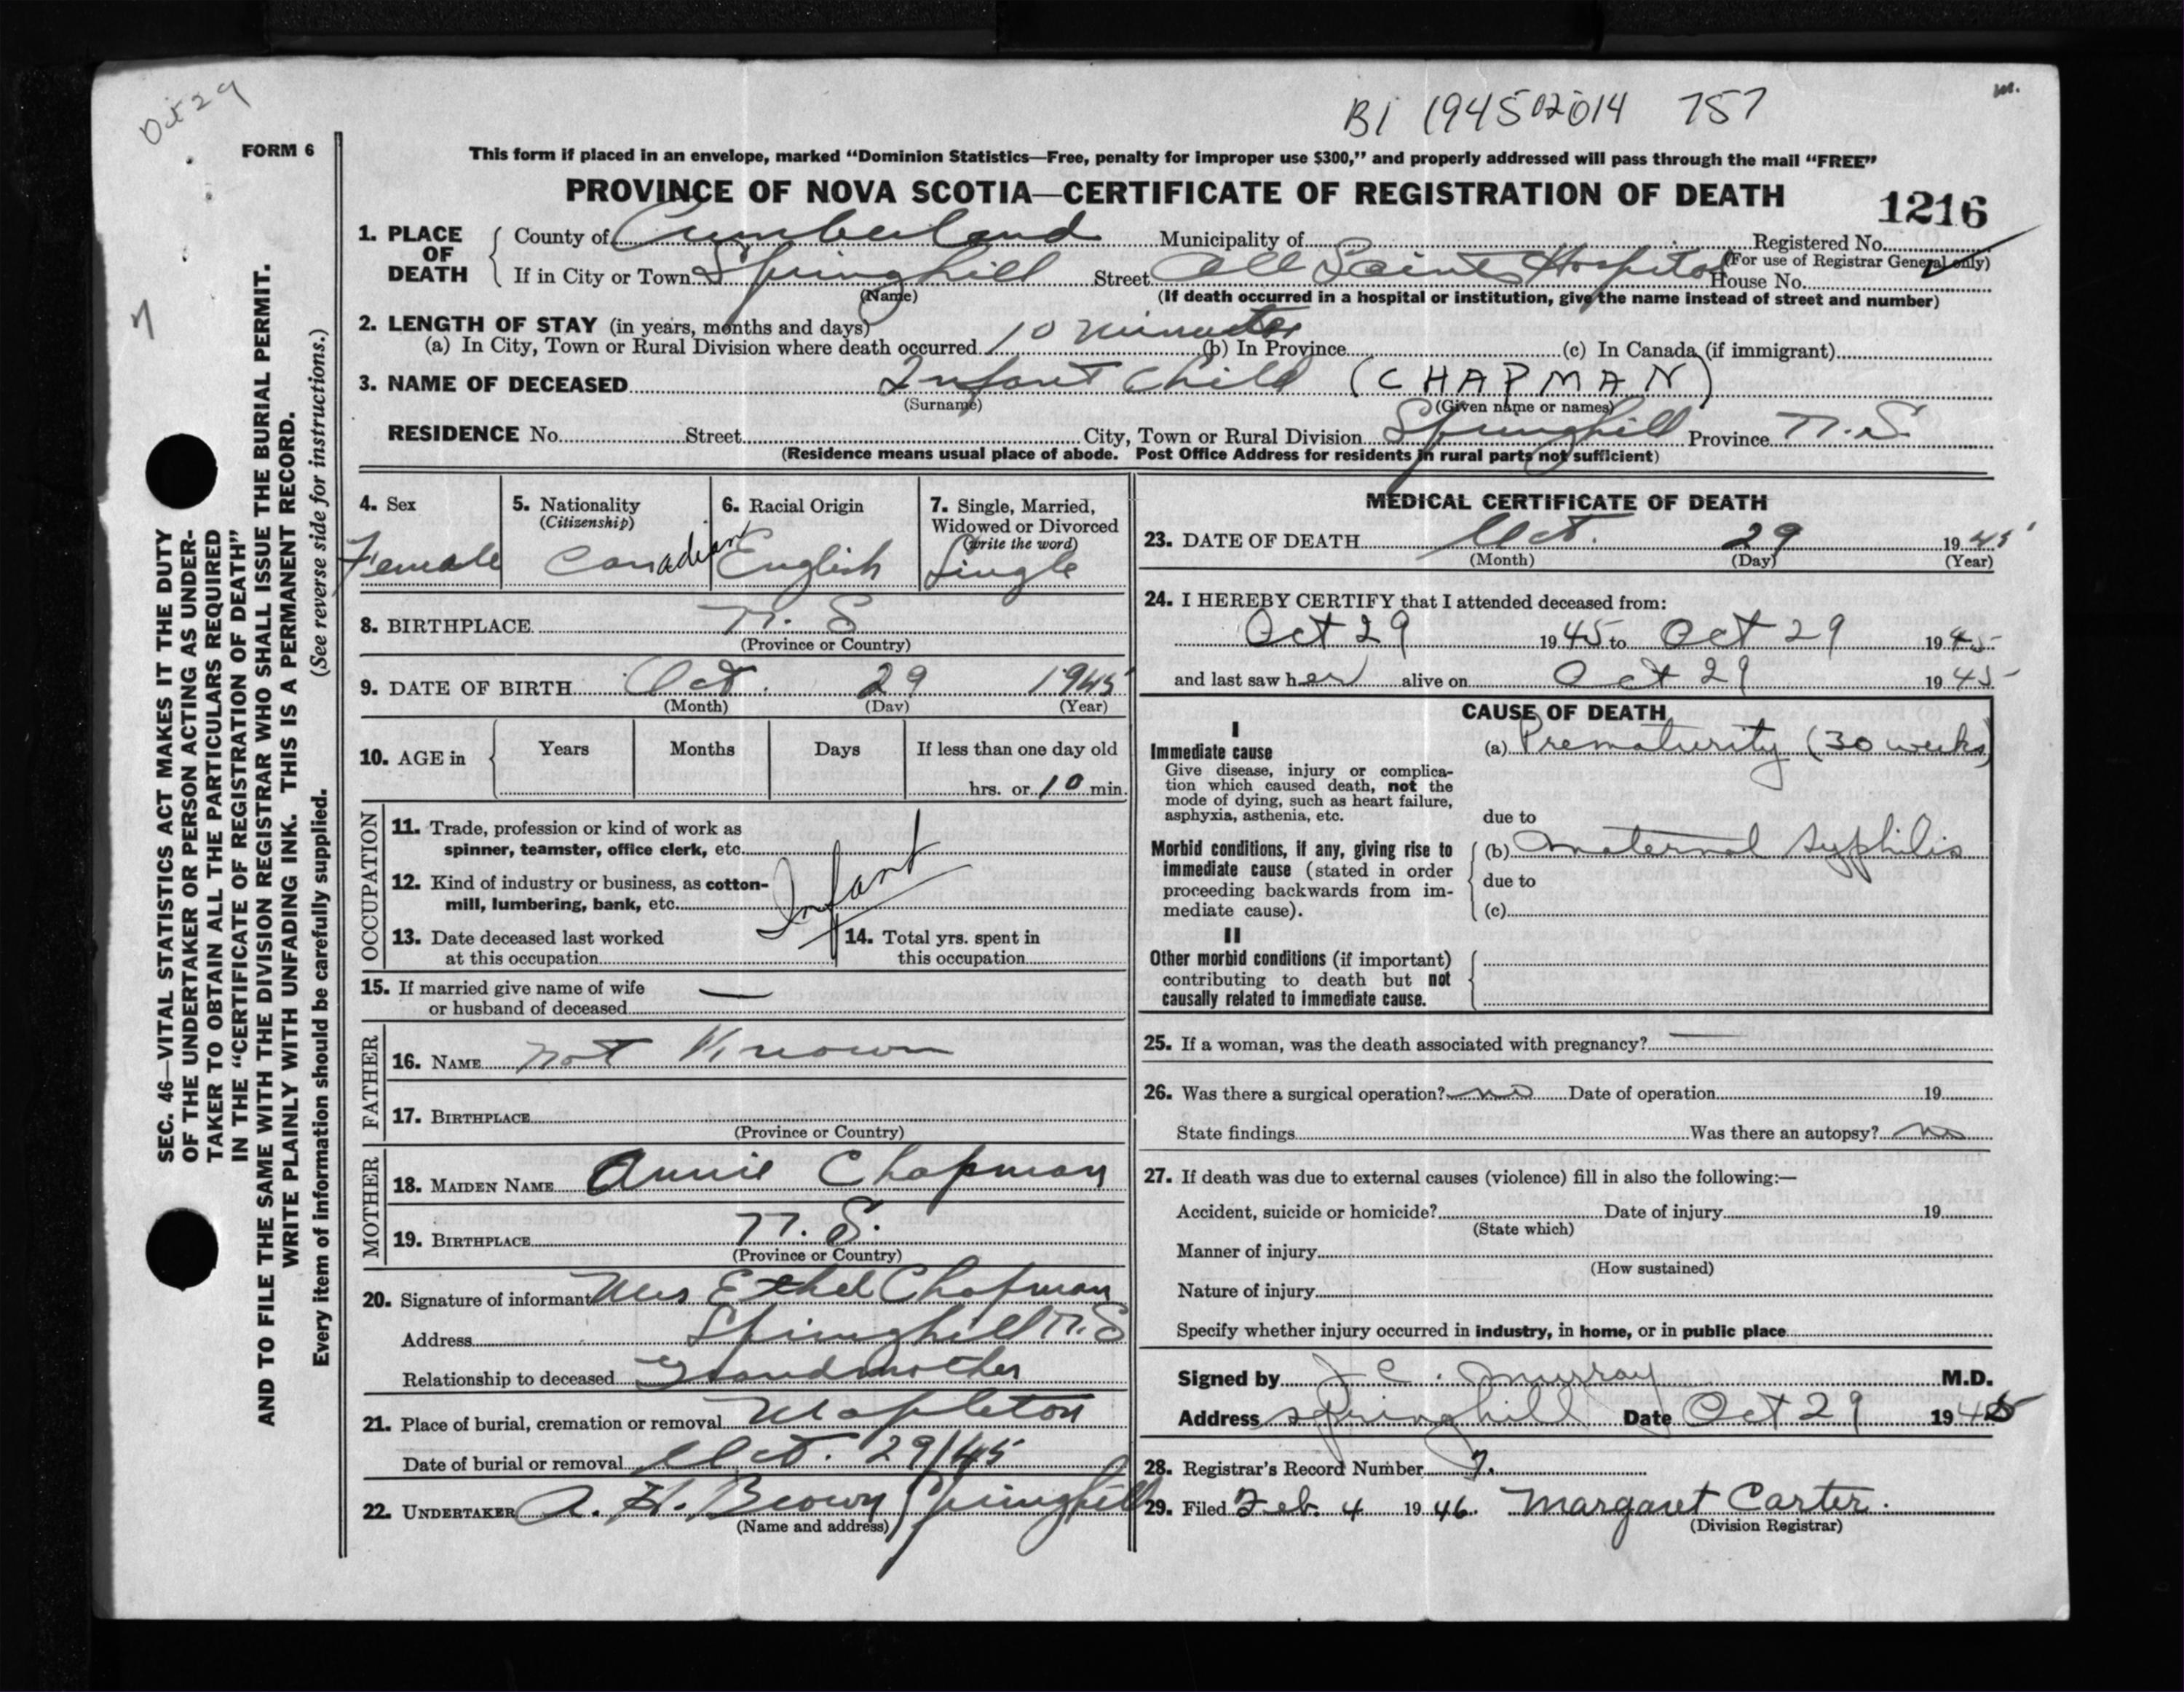 Oct 29
m.
B1 194502014 757
FORM 6
This form if placed in an envelope, marked “Dominion Statistics—Free, penalty for improper use $300,” and properly addressed will pass through the mail “FREE”
PROVINCE OF NOVA SCOTIA—CERTIFICATE OF REGISTRATION OF DEATH
1216
7
SEC. 46—VITAL STATISTICS ACT MAKES IT THE DUTY
OF THE UNDERTAKER OR PERSON ACTING AS UNDER-
TAKER TO OBTAIN ALL THE PARTICULARS REQUIRED
IN THE “CERTIFICATE OF REGISTRATION OF DEATH”
AND TO FILE THE SAME WITH THE DIVISION REGISTRAR WHO SHALL ISSUE THE BURIAL PERMIT.
WRITE PLAINLY WITH UNFADING INK. THIS IS A PERMANENT RECORD.
Every item of information should be carefully supplied. (See reverse side for instructions.)
1. PLACE OF DEATH County of Cumberland Municipality of Registered No.
(For use of Registrar General only)
If in City or Town Springhill Street All Saints Hospital House No.
(Name) (If death occurred in a hospital or institution, give the name instead of street and number)
2. LENGTH OF STAY (in years, months and days)
(a) In City, Town or Rural Division where death occurred 10 minutes (b) In Province (c) In Canada (if immigrant)
3. NAME OF DECEASED Infant Child (CHAPMAN)
(Surname) (Given name or names)
RESIDENCE No. Street City, Town or Rural Division Springhill Province N.S.
(Residence means usual place of abode. Post Office Address for residents in rural parts not sufficient)
4. Sex 5. Nationality 6. Racial Origin 7. Single, Married,
(Citizenship) Widowed or Divorced
(write the word)
Female Canadian English Single
8. BIRTHPLACE N. S
(Province or Country)
9. DATE OF BIRTH Oct. 29 1945
(Month) (Day) (Year)
10. AGE in Years Months Days If less than one day old
hrs. or 10 min.
OCCUPATION
11. Trade, profession or kind of work as
spinner, teamster, office clerk, etc.
12. Kind of industry or business, as cotton-
mill, lumbering, bank, etc.
Infant
13. Date deceased last worked 14. Total yrs. spent in
at this occupation this occupation
15. If married give name of wife —
or husband of deceased
FATHER
16. NAME Not Known
17. BIRTHPLACE
(Province or Country)
MOTHER
18. MAIDEN NAME Annie Chapman
19. BIRTHPLACE N. S.
(Province or Country)
20. Signature of informant Mrs Ethel Chapman
Address Springhill N.S
Relationship to deceased Grandmother
21. Place of burial, cremation or removal Mapleton
Date of burial or removal Oct. 29/45
22. UNDERTAKER A. H. Brown Springhill
(Name and address)
MEDICAL CERTIFICATE OF DEATH
23. DATE OF DEATH Oct. 29 1945
(Month) (Day) (Year)
24. I HEREBY CERTIFY that I attended deceased from:
Oct 29 1945 to Oct 29 1945
and last saw her alive on Oct 29 1945
CAUSE OF DEATH
I
Immediate cause (a) Prematurity (30 weeks)
Give disease, injury or complica-
tion which caused death, not the
mode of dying, such as heart failure,
asphyxia, asthenia, etc. due to
Morbid conditions, if any, giving rise to (b) Maternal Syphilis
immediate cause (stated in order
proceeding backwards from im- due to
mediate cause). (c)
II
Other morbid conditions (if important)
contributing to death but not
causally related to immediate cause.
25. If a woman, was the death associated with pregnancy? —
26. Was there a surgical operation? no Date of operation 19
State findings Was there an autopsy? no
27. If death was due to external causes (violence) fill in also the following:—
Accident, suicide or homicide? Date of injury 19
(State which)
Manner of injury
(How sustained)
Nature of injury
Specify whether injury occurred in industry, in home, or in public place
Signed by J C. Murray M.D.
Address Springhill Date Oct 29 1945
28. Registrar's Record Number 7.
29. Filed Feb. 4 1946. Margaret Carter.
(Division Registrar)